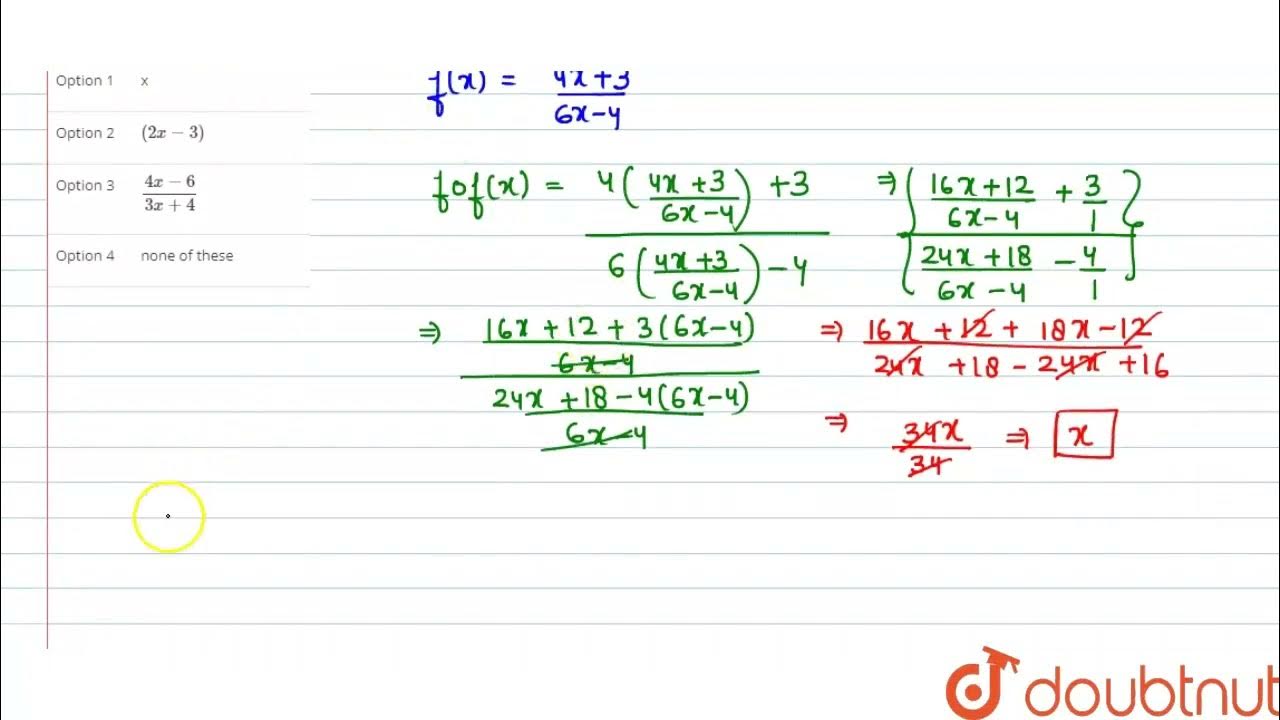 Option 1 x
Option 2 (2x − 3)
Option 3 (4x − 6)/(3x + 4)
Option 4 none of these
f(x) = (4x+3)/(6x−4)
fof(x) = (4((4x+3)/(6x−4)) +3)/(6((4x+3)/(6x−4)) −4) ⇒ {(16x+12)/(6x−4) + 3/1}/{(24x+18)/(6x−4) − 4/1}
⇒ ((16x+12+3(6x−4))/(6x−4))/((24x+18−4(6x−4))/(6x−4)) ⇒ (16x+12+18x−12)/(24x+18−24x+16)
⇒ 34x/34 ⇒ x
doubtnut